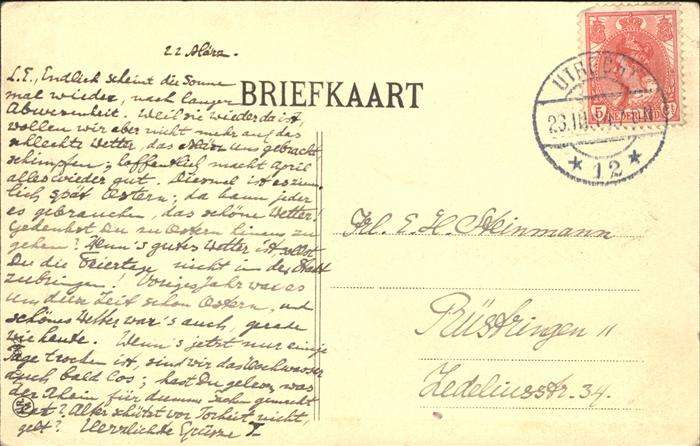 22 März.
L.E., Endlich scheint die Sonne
mal wieder, nach langer
Abwesenheit. Weil sie wieder da ist
wollen wir aber nicht mehr auf das
schlechte Wetter, das März uns gebracht
schimpfen; hoffentlich macht April
alles wieder gut. Diesmal ist es ziem-
lich spät Ostern; da kann jeder
es gebrauchen, das schöne Wetter!
Gedenkst Du zu Ostern hinaus zu
gehen? Wenn's gutes Wetter ist, sollst
Du die Feiertage nicht in der Stadt
zubringen! Voriges Jahr war es
um diese Zeit schon Ostern, und
schönes Wetter war's auch, gerade
wie heute. Wenn's jetzt nur einige
Tage trocken ist, sind wir das Hochwasser
auch bald los; hast Du gelesen was
der Rhein für dumme Sachen gemacht
hat? Alter schützt vor Torheit nicht,
gelt? Herzlichte Grüsse
BRIEFKAART
UTRECHT
23.III
12
5
NEDERLAND
Frl. E. H. Steinmann
Rüstringen II
Zedeliusstr. 34.